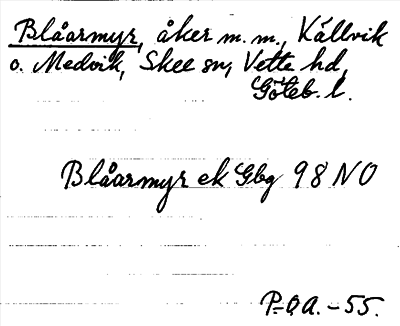 Blåarmyr, åker m. m., Källvik
o. Medvik, Skee sn, Vette hd,
Göteb. l.
Blåarmyr ek Gbg 98 NO
P-O A. - 55.